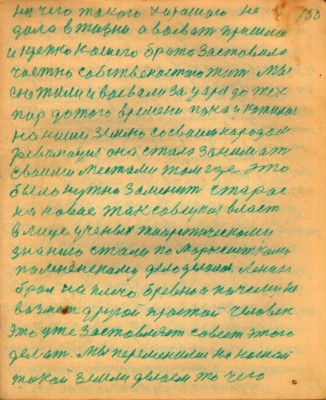 133
ни чего такого хорошого не
дала в жизни а воеват пришлось
и нужно нашего брата заставляла
частна собственостю жит мы
снажили и воевали за царя до тех
пор до того времени пока и катилась
на нашу землю со своим народам
революция она стала занимат
своими местами там где это
было нужно заменит старое
на новае так советская власт
в лице ученых тиоретическами
знанию стали по Марксисткаму
па ленинскаму дело делат. Ленин
брал на плечо бревно а почему не
возмет другой простой человек
это уже заставляет совест этого
делат. Мы переменили на нашай
такой земли делаем то чего